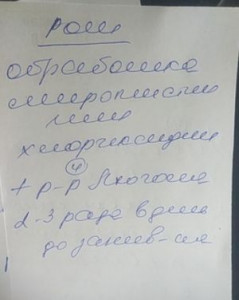 Рот
обработка
мирамистин
или
хлоргексидин
+ р-р Люголя
2-3 раза в день
до зажив-ия